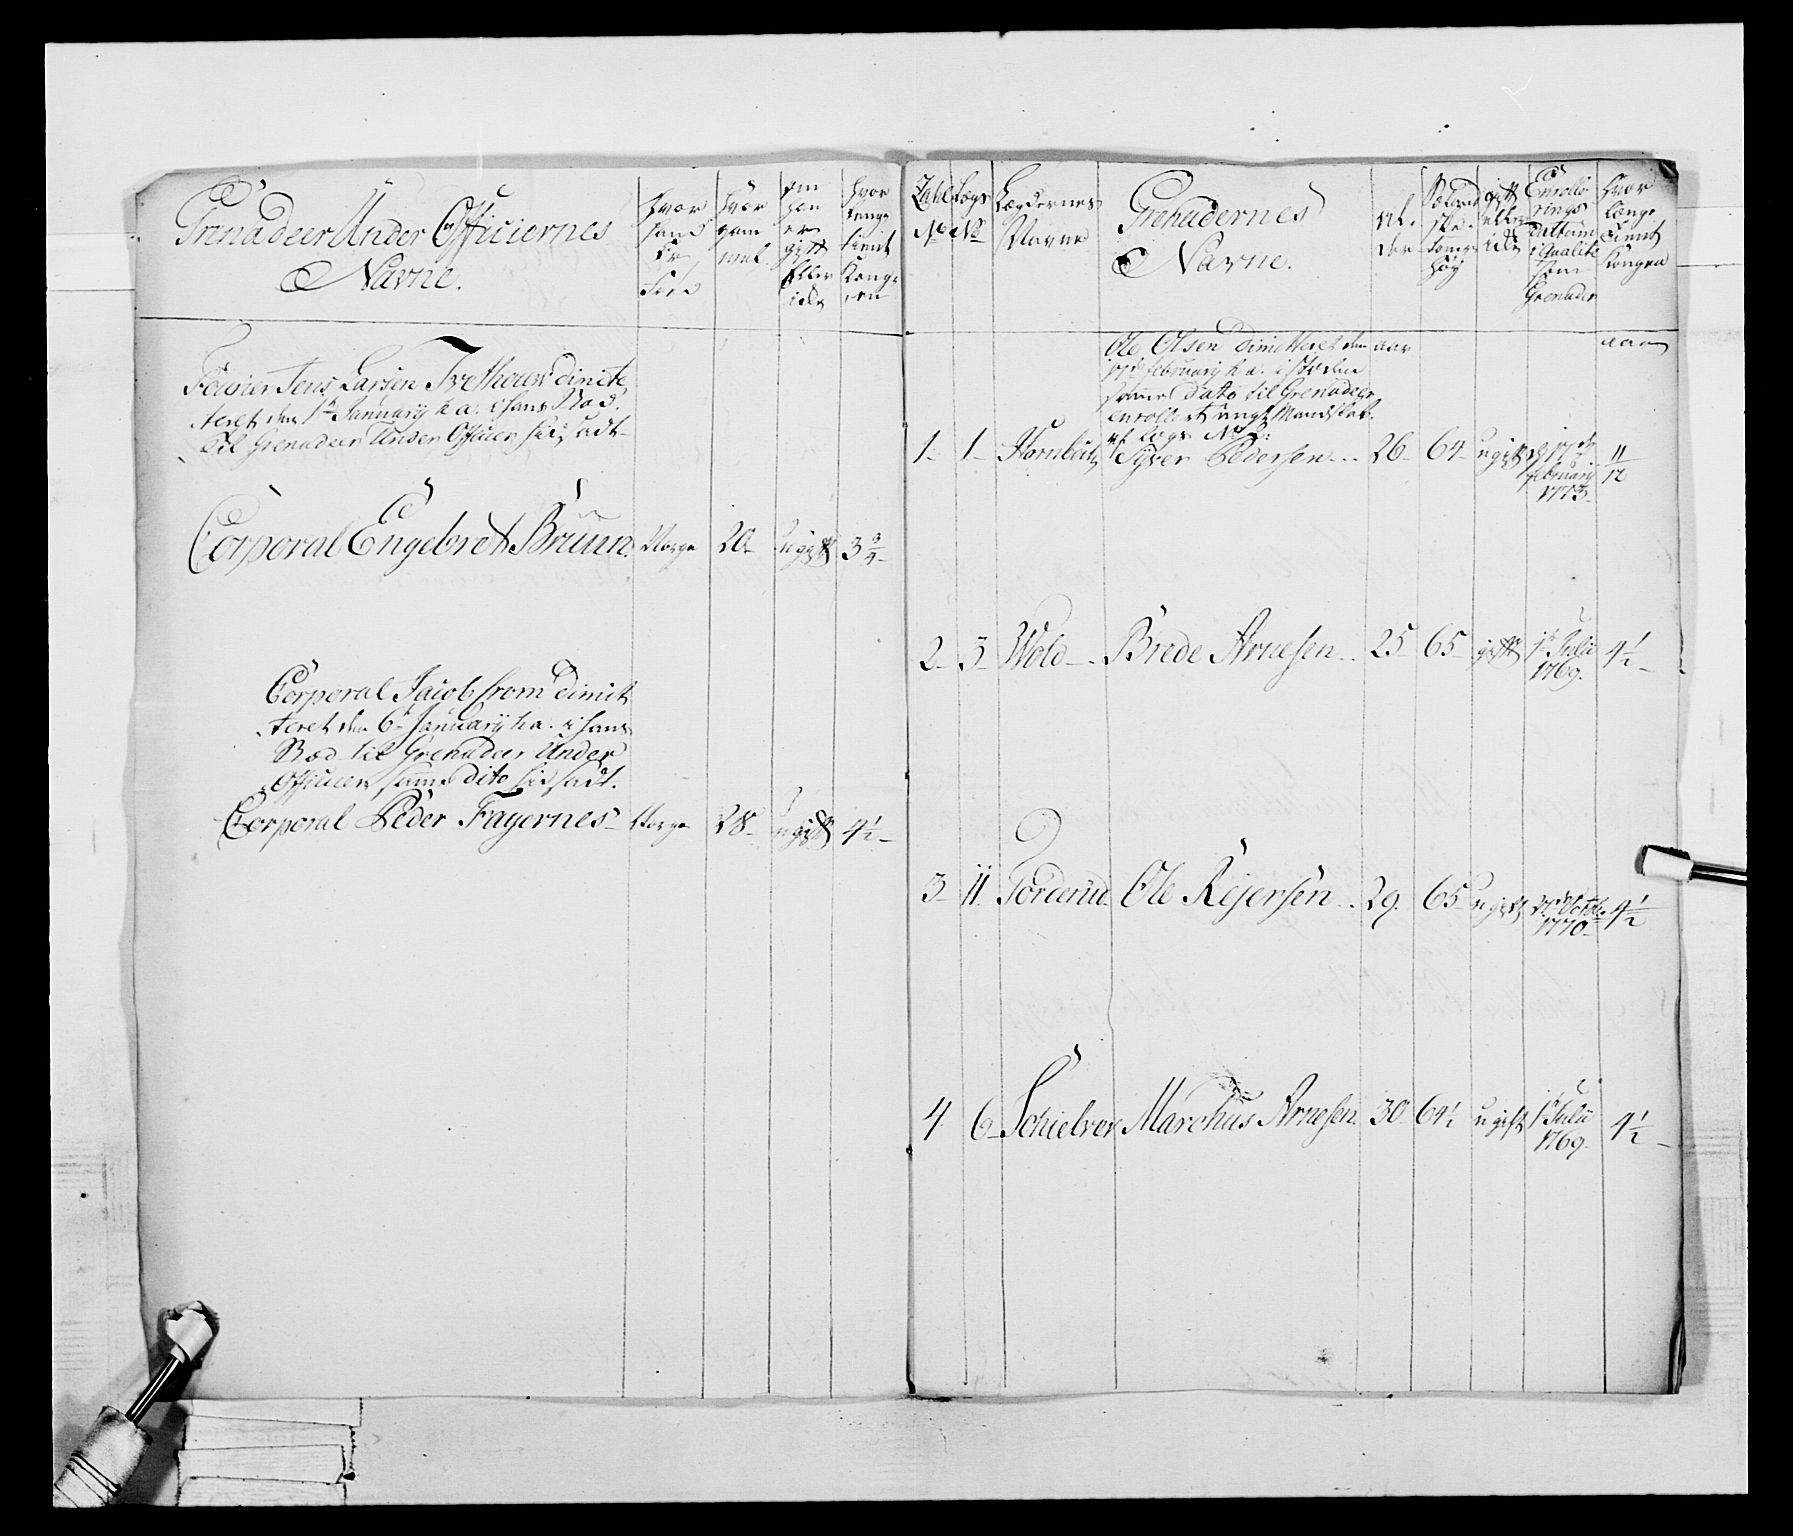 Grenadeer Under Officiernes
Navne.
Hvor
hand
Er
Fød
Hvor
gam
mel.
om
han
er
gift
Eller
ide
Hvor
lenge
tient
Kong
en
Fourier Jens Larsen Trethouw dimite
teret den 1te January h a. i hans Stæd
til Grenadeer Under Officier hid sadt
Corporal Engebret Bruun Norge 20 ugift 3 3/4
Corporal Jacob Crom dimit
teret den 6te January h a. i hans
Stæd til Grenadeer Under
Officier samme dito hid sadt.
Corporal Peder Fayernes Norge 28 ugift 4 1/2
Zahl
No
Lægs
No
Lægdernes
Navne
Grenadernes
Navne.
Al
der
gift
eller
ide
Enrolle
rings
Dattum
i Qualité
som
Grenader
Hvor
længe
tient
Kongen
Ole Olsen dimitteret den aar aar
17de February h a. i steden
samme Dato til Grenadeer
enrolleret ungt Mandskab
af lægs No
1 1 Hornbeck Syver Pedersen 26 64 ugift d 17de
February
1773 11/12
2 3 Wold Brede Arnesen 25 65 gift 1te Julii
1769. 4 1/2
3 11 Torderud Ole Rejersen 29. 65 ugift 27de Octbr
1770 4 1/2
4 6 Schielver Marchus Arnesen 30 64 1/2 ugift 1te Julii
1769 4 1/2